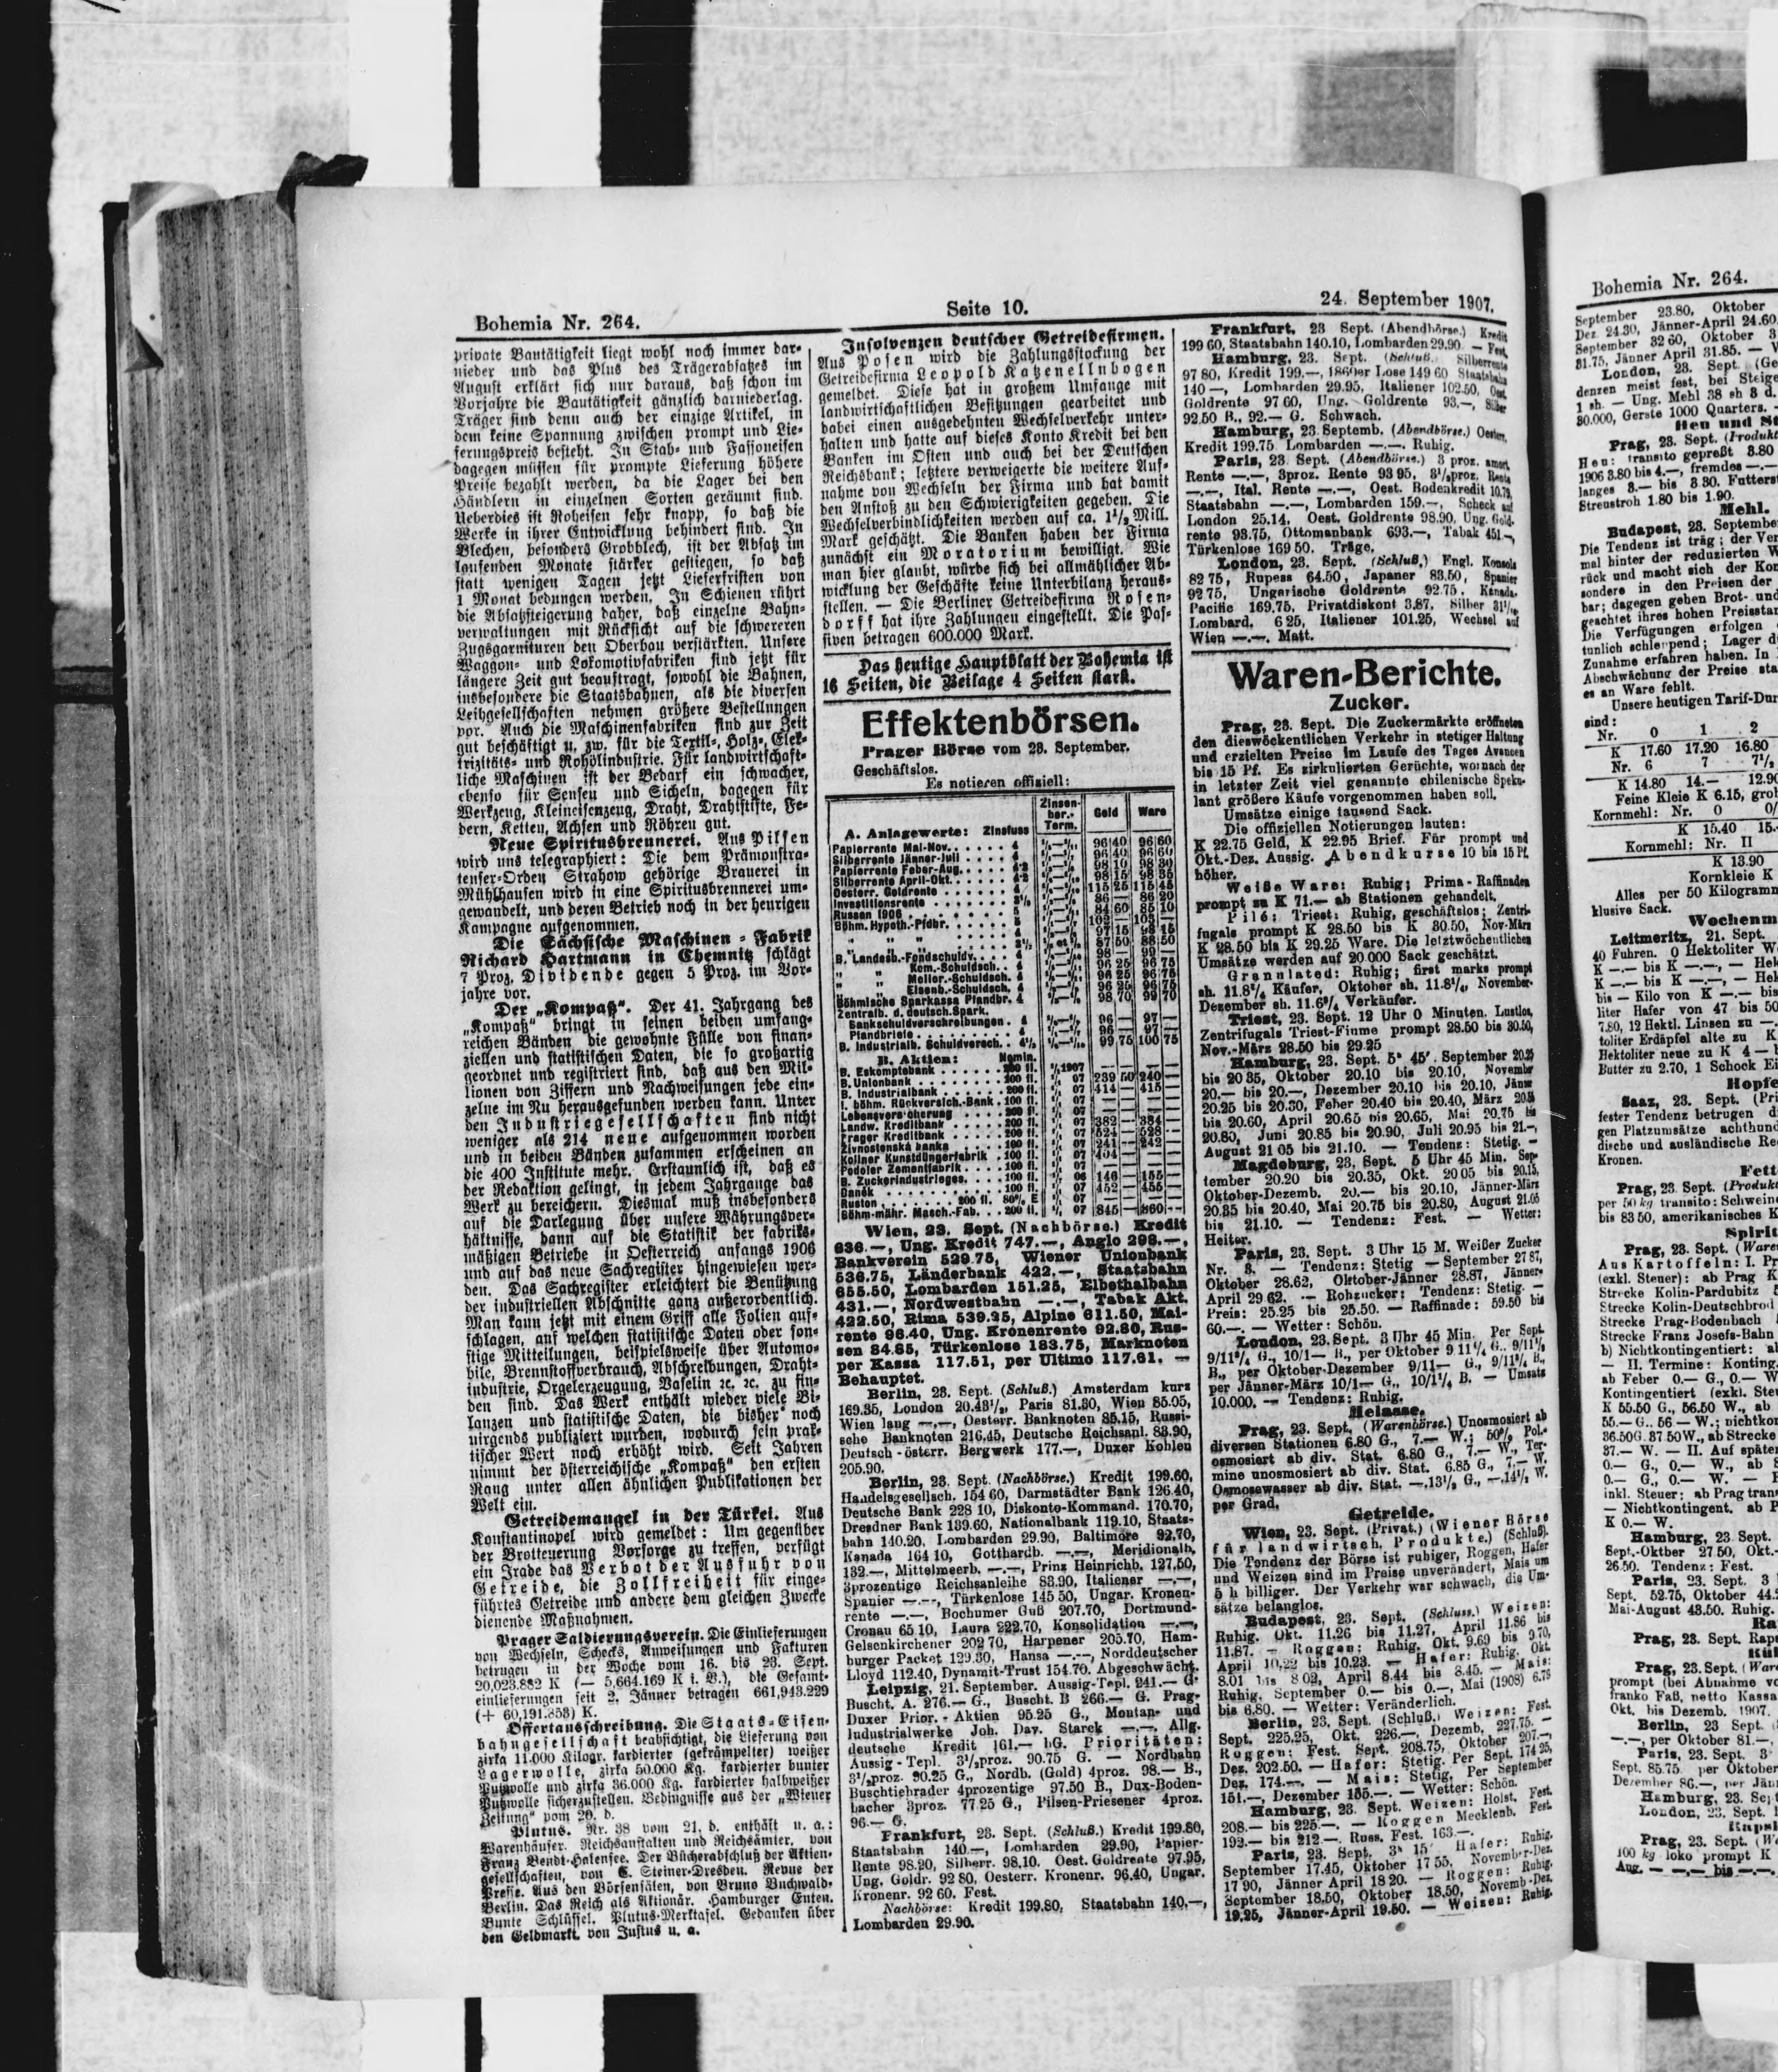 Bohemia Nr. 264.
Seite 10.
24. September 1907.
private Bautätigkeit liegt wohl noch immer dar-
nieder und das Plus des Trägerabsatzes im
August erklärt sich nur daraus, daß schon im
Vorjahre die Bautätigkeit gänzlich darniederlag.
Träger sind denn auch der einzige Artikel, in
dem keine Spannung zwischen prompt und Lie-
ferungspreis besteht. In Stab- und Fassoneisen
dagegen müssen für prompte Lieferung höhere
Preise bezahlt werden, da die Lager bei den
Händlern in einzelnen Sorten geräumt sind.
Ueberdies ist Roheisen sehr knapp, so daß die
Werke in ihrer Entwicklung behindert sind. In
Blechen, besonders Grobblech, ist der Absatz im
laufenden Monate stärker gestiegen, so daß
statt wenigen Tagen jetzt Lieferfristen von
1 Monat bedungen werden. In Schienen rührt
die Absatzsteigerung daher, daß einzelne Bahn-
verwaltungen mit Rücksicht auf die schwereren
Zugsgarnituren den Oberbau verstärkten. Unsere
Waggon- und Lokomotivfabriken sind jetzt für
längere Zeit gut beauftragt, sowohl die Bahnen,
insbesondere die Staatsbahnen, als die diversen
Leihgesellschaften nehmen größere Bestellungen
vor. Auch die Maschinenfabriken sind zur Zeit
gut beschäftigt u. zw. für die Textil-, Holz-, Elek-
trizitäts- und Rohölindustrie. Für landwirtschaft-
liche Maschinen ist der Bedarf ein schwacher,
ebenso für Sensen und Sicheln, dagegen für
Werkzeug, Kleineisenzeug, Draht, Drahtstifte, Fe-
dern, Ketten, Achsen und Röhren gut.
Neue Spiritusbrennerei. Aus Pilsen
wird uns telegraphiert: Die dem Prämonstra-
tenser-Orden Strahow gehörige Brauerei in
Mühlhausen wird in eine Spiritusbrennerei um-
gewandelt, und deren Betrieb noch in der heurigen
Kampagne aufgenommen.
Die Sächsische Maschinen-Fabrik
Richard Hartmann in Chemnitz schlägt
7 Proz. Dividende gegen 5 Proz. im Vor-
jahre vor.
Der „Kompaß“. Der 41. Jahrgang des
„Kompaß“ bringt in seinen beiden umfang-
reichen Bänden die gewohnte Fülle von finan-
ziellen und statistischen Daten, die so großartig
geordnet und registriert sind, daß aus den Mil-
lionen von Ziffern und Nachweisungen jede ein-
zelne im Nu herausgefunden werden kann. Unter
den Industriegesellschaften sind nicht
weniger als 214 neue aufgenommen worden
und in beiden Bänden zusammen erscheinen an
die 400 Institute mehr. Erstaunlich ist, daß es
der Redaktion gelingt, in jedem Jahrgange das
Werk zu bereichern. Diesmal muß insbesonders
auf die Darlegung über unsere Währungsver-
hältnisse, dann auf die Statistik der fabriks-
mäßigen Betriebe in Oesterreich anfangs 1906
und auf das neue Sachregister hingewiesen wer-
den. Das Sachregister erleichtert die Benützung
der industriellen Abschnitte ganz außerordentlich.
Man kann jetzt mit einem Griff alle Folien auf-
schlagen, auf welchen statistische Daten oder son-
stige Mitteilungen, beispielsweise über Automo-
bile, Brennstoffverbrauch, Abschreibungen, Draht-
industrie, Orgelerzeugung, Vaselin ꝛc. ꝛc. zu fin-
den sind. Das Werk enthält wieder viele Bi-
lanzen und statistische Daten, die bisher noch
nirgends publiziert wurden, wodurch sein prak-
tischer Wert noch erhöht wird. Seit Jahren
nimmt der österreichische „Kompaß“ den ersten
Rang unter allen ähnlichen Publikationen der
Welt ein.
Getreidemangel in der Türkei. Aus
Konstantinopel wird gemeldet: Um gegenüber
der Brotteuerung Vorsorge zu treffen, verfügt
ein Irade das Verbot der Ausfuhr von
Getreide, die Zollfreiheit für einge-
führtes Getreide und andere dem gleichen Zwecke
dienende Maßnahmen.
Prager Saldierungsverein. Die Einlieferungen
von Wechseln, Schecks, Anweisungen und Fakturen
betrugen in der Woche vom 16. bis 23. Sept.
20,023.882 K (— 5,664.169 K i. V.), die Gesamt-
einlieferungen seit 2. Jänner betragen 661,943.229
(+ 60,191.853) K.
Offertausschreibung. Die Staats-Eisen-
bahngesellschaft beabsichtigt, die Lieferung von
zirka 11.000 Kilogr. kardierter (gekrämpelter) weißer
Lagerwolle, zirka 50.000 Kg. kardierter bunter
Putzwolle und zirka 36.000 Kg. kardierter halbweißer
Putzwolle sicherzustellen. Bedingnisse aus der „Wiener
Zeitung“ vom 20. d.
Plutus. Nr. 38 vom 21. d. enthält u. a.:
Warenhäuser. Reichsanstalten und Reichsämter, von
Franz Bendt-Halensee. Der Bücherabschluß der Aktien-
gesellschaften, von E. Steiner-Dresden. Revue der
Presse. Aus den Börsensälen, von Bruno Buchwald-
Berlin. Das Reich als Aktionär. Hamburger Enten.
Bunte Schlüssel. Plutus-Merktafel. Gedanken über
den Geldmarkt. von Justus u. a.
Insolvenzen deutscher Getreidefirmen.
Aus Posen wird die Zahlungsstockung der
Getreidefirma Leopold Katzenellnbogen
gemeldet. Diese hat in großem Umfange mit
landwirtschaftlichen Besitzungen gearbeitet und
dabei einen ausgedehnten Wechselverkehr unter-
halten und hatte auf dieses Konto Kredit bei den
Banken im Osten und auch bei der Deutschen
Reichsbank; letztere verweigerte die weitere Auf-
nahme von Wechseln der Firma und hat damit
den Anstoß zu den Schwierigkeiten gegeben. Die
Wechselverbindlichkeiten werden auf ca. 1½ Mill.
Mark geschätzt. Die Banken haben der Firma
zunächst ein Moratorium bewilligt. Wie
man hier glaubt, würde sich bei allmählicher Ab-
wicklung der Geschäfte keine Unterbilanz heraus-
stellen. — Die Berliner Getreidefirma Rosen-
dorff hat ihre Zahlungen eingestellt. Die Pas-
siven betragen 600.000 Mark.
Das heutige Hauptblatt der Bohemia ist
16 Seiten, die Beilage 4 Seiten stark.
Effektenbörsen.
Prager Börse vom 23. September.
Geschäftslos.
Es notieren offiziell:
A. Anlagewerte: Zinsfuss Zinsen-ber.-Term. Geld Ware
Papierrente Mai-Nov. 4 96 40 96 60
Silberrente Jänner-Juli 4 96 40 96 60
Papierrente Feber-Aug. 4·2 98 10 98 30
Silberrente April-Okt. 4·2 98 15 98 35
Oesterr. Goldrente 4 115 25 115 45
Investitionsrente 3½ 86 — 86 20
Russen 1906 5 84 60 85 10
Böhm. Hypoth.-Pfdbr. 5 102 — 103 —
" " 4 97 15 98 15
" " 3½ 87 50 88 50
B. Landesb.-Fondschuldv. 4 98 — 99 —
" Kom.-Schuldsch. 4 96 25 96 75
" Melior.-Schuldsch. 4 96 25 96 75
" Eisenb.-Schuldsch. 4 96 25 96 75
Böhmische Sparkassa Pfandbr. 4 98,70 99 70
Zentralb. d. deutsch. Spark.
Bankschuldverschreibungen 4 96 — 97 —
Pfandbriefe 4 96 — 97 —
B. Industrialb. Schuldversch. 4½ 99 75 100 75
B. Aktien: Nomin.
B. Eskomptebank 200 fl. 1907 — —
B. Unionbank 100 fl. 07 239 50 240 —
B. Industrialbank 200 fl. 07 414 — 415 —
I. böhm. Rückversich.-Bank 100 fl. 07 — —
Lebensversicherung 200 fl. 07 — —
Landw. Kreditbank 200 fl. 07 382 — 384 —
Prager Kreditbank 200 fl. 07 524 — 528 —
Živnostenská banka 100 fl. 07 241 — 242 —
Kolíner Kunstdüngerfabrik 100 fl. 07 404 — —
Podoler Zementfabrik 100 fl. 07 — —
B. Zuckerindustrieges. 100 fl. 06 146 — 155 —
Daněk 100 fl. 07 452 — 455 —
Ruston 200 fl. 80% E 07 — —
Böhm-mähr. Masch.-Fab. 200 fl. 07 845 — 860 —
Wien, 23. Sept. (Nachbörse.) Kredit
636.—, Ung. Kredit 747.—, Anglo 298.—,
Bankverein 529.75, Wiener Unionbank
536.75, Länderbank 422.—, Staatsbahn
655.50, Lombarden 151.25, Elbethalbahn
431.—, Nordwestbahn —.—, Tabak Akt.
422.50, Rima 539.25, Alpine 611.50, Mai-
rente 96.40, Ung. Kronenrente 92.80, Rus-
sen 84.85, Türkenlose 183.75, Marknoten
per Kassa 117.51, per Ultimo 117.61. —
Behauptet.
Berlin, 23. Sept. (Schluß.) Amsterdam kurz
169.35, London 20.43½, Paris 81.30, Wien 85.05,
Wien lang —.—, Oesterr. Banknoten 85.15, Russi-
sche Banknoten 216.45, Deutsche Reichsanl. 83.90,
Deutsch-österr. Bergwerk 177.—, Duxer Kohlen
205.90.
Berlin, 23. Sept. (Nachbörse.) Kredit 199.60,
Handelsgesellsch. 154 60, Darmstädter Bank 126.40,
Deutsche Bank 228 10, Diskonto-Kommand. 170.70,
Dresdner Bank 139.60, Nationalbank 119.10, Staats-
bahn 140.20, Lombarden 29.90, Baltimore 92.70,
Kanada 164 10, Gotthardb. —.—, Meridionalb.
132.—, Mittelmeerb. —.—, Prinz Heinrichb. 127.50,
3prozentige Reichsanleihe 83.90, Italiener —.—,
Spanier —.—, Türkenlose 145 50, Ungar. Kronen-
rente —.—, Bochumer Guß 207.70, Dortmund-
Cronau 65 10, Laura 222.70, Konsolidation —.—,
Gelsenkirchener 202 70, Harpener 205.70, Ham-
burger Packet 129.30, Hansa —.—, Norddeutscher
Lloyd 112.40, Dynamit-Trust 154.70. Abgeschwächt.
Leipzig, 21. September. Aussig-Tepl. 241.— G.
Buscht. A. 276.— G., Buscht. B 266.— G. Prag-
Duxer Prior.-Aktien 95 25 G., Montan- und
Industrialwerke Joh. Dav. Starck —.—. Allg.
deutsche Kredit 161.— bG. Prioritäten:
Aussig-Tepl. 3½proz. 90.75 G. — Nordbahn
3½proz. 90.25 G., Nordb. (Gold) 4proz. 98.— B.,
Buschtiehrader 4prozentige 97.50 B., Dux-Boden-
bacher 3proz. 77 25 G., Pilsen-Priesener 4proz.
96.— G.
Frankfurt, 23. Sept. (Schluß.) Kredit 199.80,
Staatsbahn 140.—, Lombarden 29.90, Papier-
Rente 98.20, Silberr. 98.10. Oest. Goldrente 97.95,
Ung. Goldr. 92 80, Oesterr. Kronenr. 96.40, Ungar.
Kronenr. 92 60. Fest.
Nachbörse: Kredit 199.80, Staatsbahn 140.—,
Lombarden 29.90.
Frankfurt, 23 Sept. (Abendbörse.) Kredit
199 60, Staatsbahn 140.10, Lombarden 29.90. — Fest.
Hamburg, 23. Sept. (Schluß. Silberrente
97 80, Kredit 199.—, 1860er Lose 149 60 Staatsbahn
140 —, Lombarden 29.95, Italiener 102.50, Oest.
Goldrente 97 60, Ung. Goldrente 93.—, Silber
92.50 B., 92.— G. Schwach.
Hamburg, 23. Septemb. (Abendbörse.) Oesterr.
Kredit 199.75, Lombarden —.—. Ruhig.
Paris, 23 Sept. (Abendbörse.) 3 proz. amort.
Rente —.—, 3proz. Rente 93 95, 3½proz. Rente
—.—, Ital. Rente —.—, Oest. Bodenkredit 10.75,
Staatsbahn —.—, Lombarden 159.—, Scheck auf
London 25.14, Oest. Goldrente 98.90, Ung. Gold-
rente 93.75, Ottomanbank 693.—, Tabak 451 —,
Türkenlose 169 50. Träge.
London, 23. Sept. (Schluß.) Engl. Konsols
82 75, Rupees 64.50, Japaner 83.50, Spanier
92 75, Ungarische Goldrente 92.75, Kanada-
Pacific 169.75, Privatdiskont 3.87, Silber
Lombard. 6 25, Italiener 101.25, Wechsel auf
Wien —.—. Matt.
Waren-Berichte.
Zucker.
Prag, 23. Sept. Die Zuckermärkte eröffneten
den dieswöckentlichen Verkehr in stetiger Haltung
und erzielten Preise im Laufe des Tages Avancen
bis 15 Pf. Es zirkulierten Gerüchte, wornach der
in letzter Zeit viel genannte chilenische Speku-
lant größere Käufe vorgenommen haben soll.
Umsätze einige tausend Sack.
Die offiziellen Notierungen lauten:
K 22.75 Geld, K 22.95 Brief. Für prompt und
Okt.-Dez. Aussig. Abendkurse 10 bis 15 Pf.
höher.
Weiße Ware: Ruhig; Prima-Raffinaden
prompt zu K 71.— ab Stationen gehandelt.
Pilé: Triest: Ruhig, geschäftslos; Zentri-
fugals prompt K 28.50 bis K 30.50, Nov-März
K 28.50 bis K 29.25 Ware. Die letztwöchentlichen
Umsätze werden auf 20.000 Sack geschätzt.
Granulated: Ruhig; first marks prompt
sh. 11.8¼ Käufer, Oktober sh. 11.8¼, November-
Dezember sh. 11.6¾ Verkäufer.
Triest, 23. Sept. 12 Uhr 0 Minuten. Lustlos,
Zentrifugals Triest-Fiume prompt 28.50 bis 30.50,
Nov.-März 28.50 bis 29.25
Hamburg, 23. Sept. 5ʰ 45′. September 20.25
bis 20 35, Oktober 20.10 bis 20.10, November
20.— bis 20.—, Dezember 20.10 bis 20.10, Jänner
20.25 bis 20.30, Feber 20.40 bis 20.40, März
bis 20.60, April 20.65 bis 20.65, Mai 20.75 bis
20.80, Juni 20.85 bis 20.90, Juli 20.95 bis 21.—,
August 21 05 bis 21.10. — Tendenz: Stetig. —
Magdeburg, 23. Sept. 5 Uhr 45 Min. Sep-
tember 20.20 bis 20.35, Okt. 20 05 bis 20.15,
Oktober-Dezemb. 20.— bis 20.10, Jänner-März
20.35 bis 20.40, Mai 20.75 bis 20.80, August 21.05
bis 21.10. — Tendenz: Fest. — Wetter:
Heiter.
Paris, 23. Sept. 3 Uhr 15 M. Weißer Zucker
Nr. 3. — Tendenz: Stetig — September 27 87,
Oktober 28.62, Oktober-Jänner 28.87, Jänner-
April 29 62. — Rohzucker: Tendenz: Stetig. —
Preis: 25.25 bis 25.50. — Raffinade: 59.50 bis
60.—. — Wetter: Schön.
London, 23. Sept. 3 Uhr 45 Min. Per Sept.
9/11¾ G., 10/1— B., per Oktober 9 11¼ G., 9/11½
B., per Oktober-Dezember 9/11— G., 9/11¼ B.,
per Jänner-März 10/1— G., 10/1¼ B. — Umsatz
10.000. — Tendenz: Ruhig.
Melasse.
Prag, 23. Sept. (Warenbörse.) Unosmosiert ab
diversen Stationen 6.80 G., 7.— W.; 50% Pol.-
osmosiert ab div. Stat. 6.80 G., 7.— W., Ter-
mine unosmosiert ab div. Stat. 6.85 G., 7.— W.
Osmosewasser ab div. Stat. —.13½ G., —.14½ W.
per Grad.
Getreide.
Wien, 23. Sept. (Privat.) (Wiener Börse
für landwirtsch. Produkte.) (Schluß).
Die Tendenz der Börse ist ruhiger, Roggen, Hafer
und Weizen sind im Preise unverändert, Mais um
5 h billiger. Der Verkehr war schwach, die Um-
sätze belanglos.
Budapest, 23. Sept. (Schluss.) Weizen:
Ruhig. Okt. 11.26 bis 11.27, April 11.86 bis
11.87. — Roggen: Ruhig. Okt. 9.69 bis 9.70,
April 10.22 bis 10.23. — Hafer: Ruhig. Okt.
8.01 bis 8 02, April 8.44 bis 8.45. — Mais:
Ruhig. September 0.— bis 0.—, Mai (1908) 6.79
bis 6.80. — Wetter: Veränderlich.
Berlin, 23. Sept. (Schluß.) Weizen: Fest.
Sept. 225.25, Okt. 226.—, Dezemb. 227.75. —
Roggen: Fest. Sept. 208.75, Oktober 207.—,
Dez. 202.50. — Hafer: Stetig. Per Sept. 174 25,
Dez. 174.—. — Mais: Stetig. Per September
151.—, Dezember 155.—. — Wetter: Schön.
Hamburg, 23. Sept. Weizen: Holst. Fest.
208.— bis 225.—. — Roggen Mecklenb. Fest.
192.— bis 212.—. Russ. Fest. 163.—.
Paris, 23. Sept. 3ʰ 15′ Hafer: Ruhig.
September 17.45, Oktober 17 55, November-Dez.
17 90, Jänner April 18 20. — Roggen: Ruhig.
September 18.50, Oktober 18.50, Novemb-Dez.
19.25, Jänner-April 19.50. — Weizen: Ruhig.
Bohemia Nr. 264.
September 23.80, Oktober
Dez 24.30, Jänner-April 24.60
September 32 60, Oktober 3
31.75, Jänner April 31.85. —
London, 23. Sept. (Ge
denzen meist fest, bei Steige
1 sh. — Ung. Mehl 38 sh 8 d.
30.000, Gerste 1000 Quarters. -
Heu und St
Prag, 23. Sept. (Produkt
Heu: transito gepreßt 3.80
1906 3.80 bis 4.—, fremdes —.—
langes 3.— bis 3 30. Futterst
Streustroh 1.80 bis 1.90.
Mehl.
Budapest, 23. Septembe
Die Tendenz ist träg; der Ver
mal hinter der reduzierten W
rück und macht sich der Kon
sondere in den Preisen der
bar; dagegen geben Brot- und
geachtet ihres hohen Preisstan
Die Verfügungen erfolgen
tunlich schleppend; Lager d
Zunahme erfahren haben. In
Abschwächung der Preise sta
es an Ware fehlt.
Unsere heutigen Tarif-Dur
sind:
Nr. 0 1 2
K 17.60 17.20 16.80
Nr. 6 7 7½
K 14.80 14.— 12.90
Feine Kleie K 6.15, grob
Kornmehl: Nr. 0 0/
K 15.40 15.-
Kornmehl: Nr. II
K 13.90
Kornkleie K
Alles per 50 Kilogramm
klusive Sack.
Wochenm
Leitmeritz, 21. Sept.
40 Fuhren. 0 Hektoliter W
K —.— bis K —.—, — Hek
K —.— bis K —.—, — Hek
bis — Kilo von K —.— bis
liter Hafer von 47 bis 50
7.80, 12 Hektl. Linsen zu —.
toliter Erdäpfel alte zu K
Hektoliter neue zu K 4 — b
Butter zu 2.70, 1 Schock Ei
Hopfe
Saaz, 23. Sept. (Pri
fester Tendenz betrugen d
gen Platzumsätze achthund
dische und ausländische Re
Kronen.
Fett
Prag, 23. Sept. (Produkt
per 50 kg transito: Schwein
bis 83 50, amerikanisches K
Spirit
Prag, 23. Sept. (Ware
Aus Kartoffeln: I. Pr
(exkl. Steuer): ab Prag K
Strecke Kolin-Pardubitz
Strecke Kolin-Deutschbrod
Strecke Prag-Bodenbach
Strecke Franz Josefs-Bahn
b) Nichtkontingentiert: al
— II. Termine: Konting.
ab Feber 0.— G., 0.— W
Kontingentiert (exkl. Steu
K 55.50 G., 56.50 W., ab
55.— G.. 56 — W.; nichtkon
36.50G. 37 50W., ab Strecke
37.— W. — II. Auf später
0.— G., 0.— W., ab S
0.— G., 0.— W. —
inkl. Steuer; ab Prag tran
— Nichtkontingent. ab P
K 0.— W.
Hamburg, 23 Sept.
Sept.-Oktber 27 50, Okt.-
26 50. Tendenz: Fest.
Paris, 23. Sept. 3
Sept. 52.75, Oktober 44.
Mai-August 43.50. Ruhig.
Ra
Prag, 23. Sept. Rap
Rü
Prag, 23. Sept. (Ware
prompt (bei Abnahme vo
franko Faß, netto Kassa
Okt. bis Dezemb. 1907.
Berlin, 23 Sept.
—.—, per Oktober 81.—,
Paris, 23. Sept. 3
Sept. 85.75 per Oktober
Dezember 86.—, per Jän
Hamburg, 23. Sept
London, 23. Sept.
Rapsk
Prag, 23. Sept. (W
100 kg loko prompt K
Aug. — —.— bis —.—.